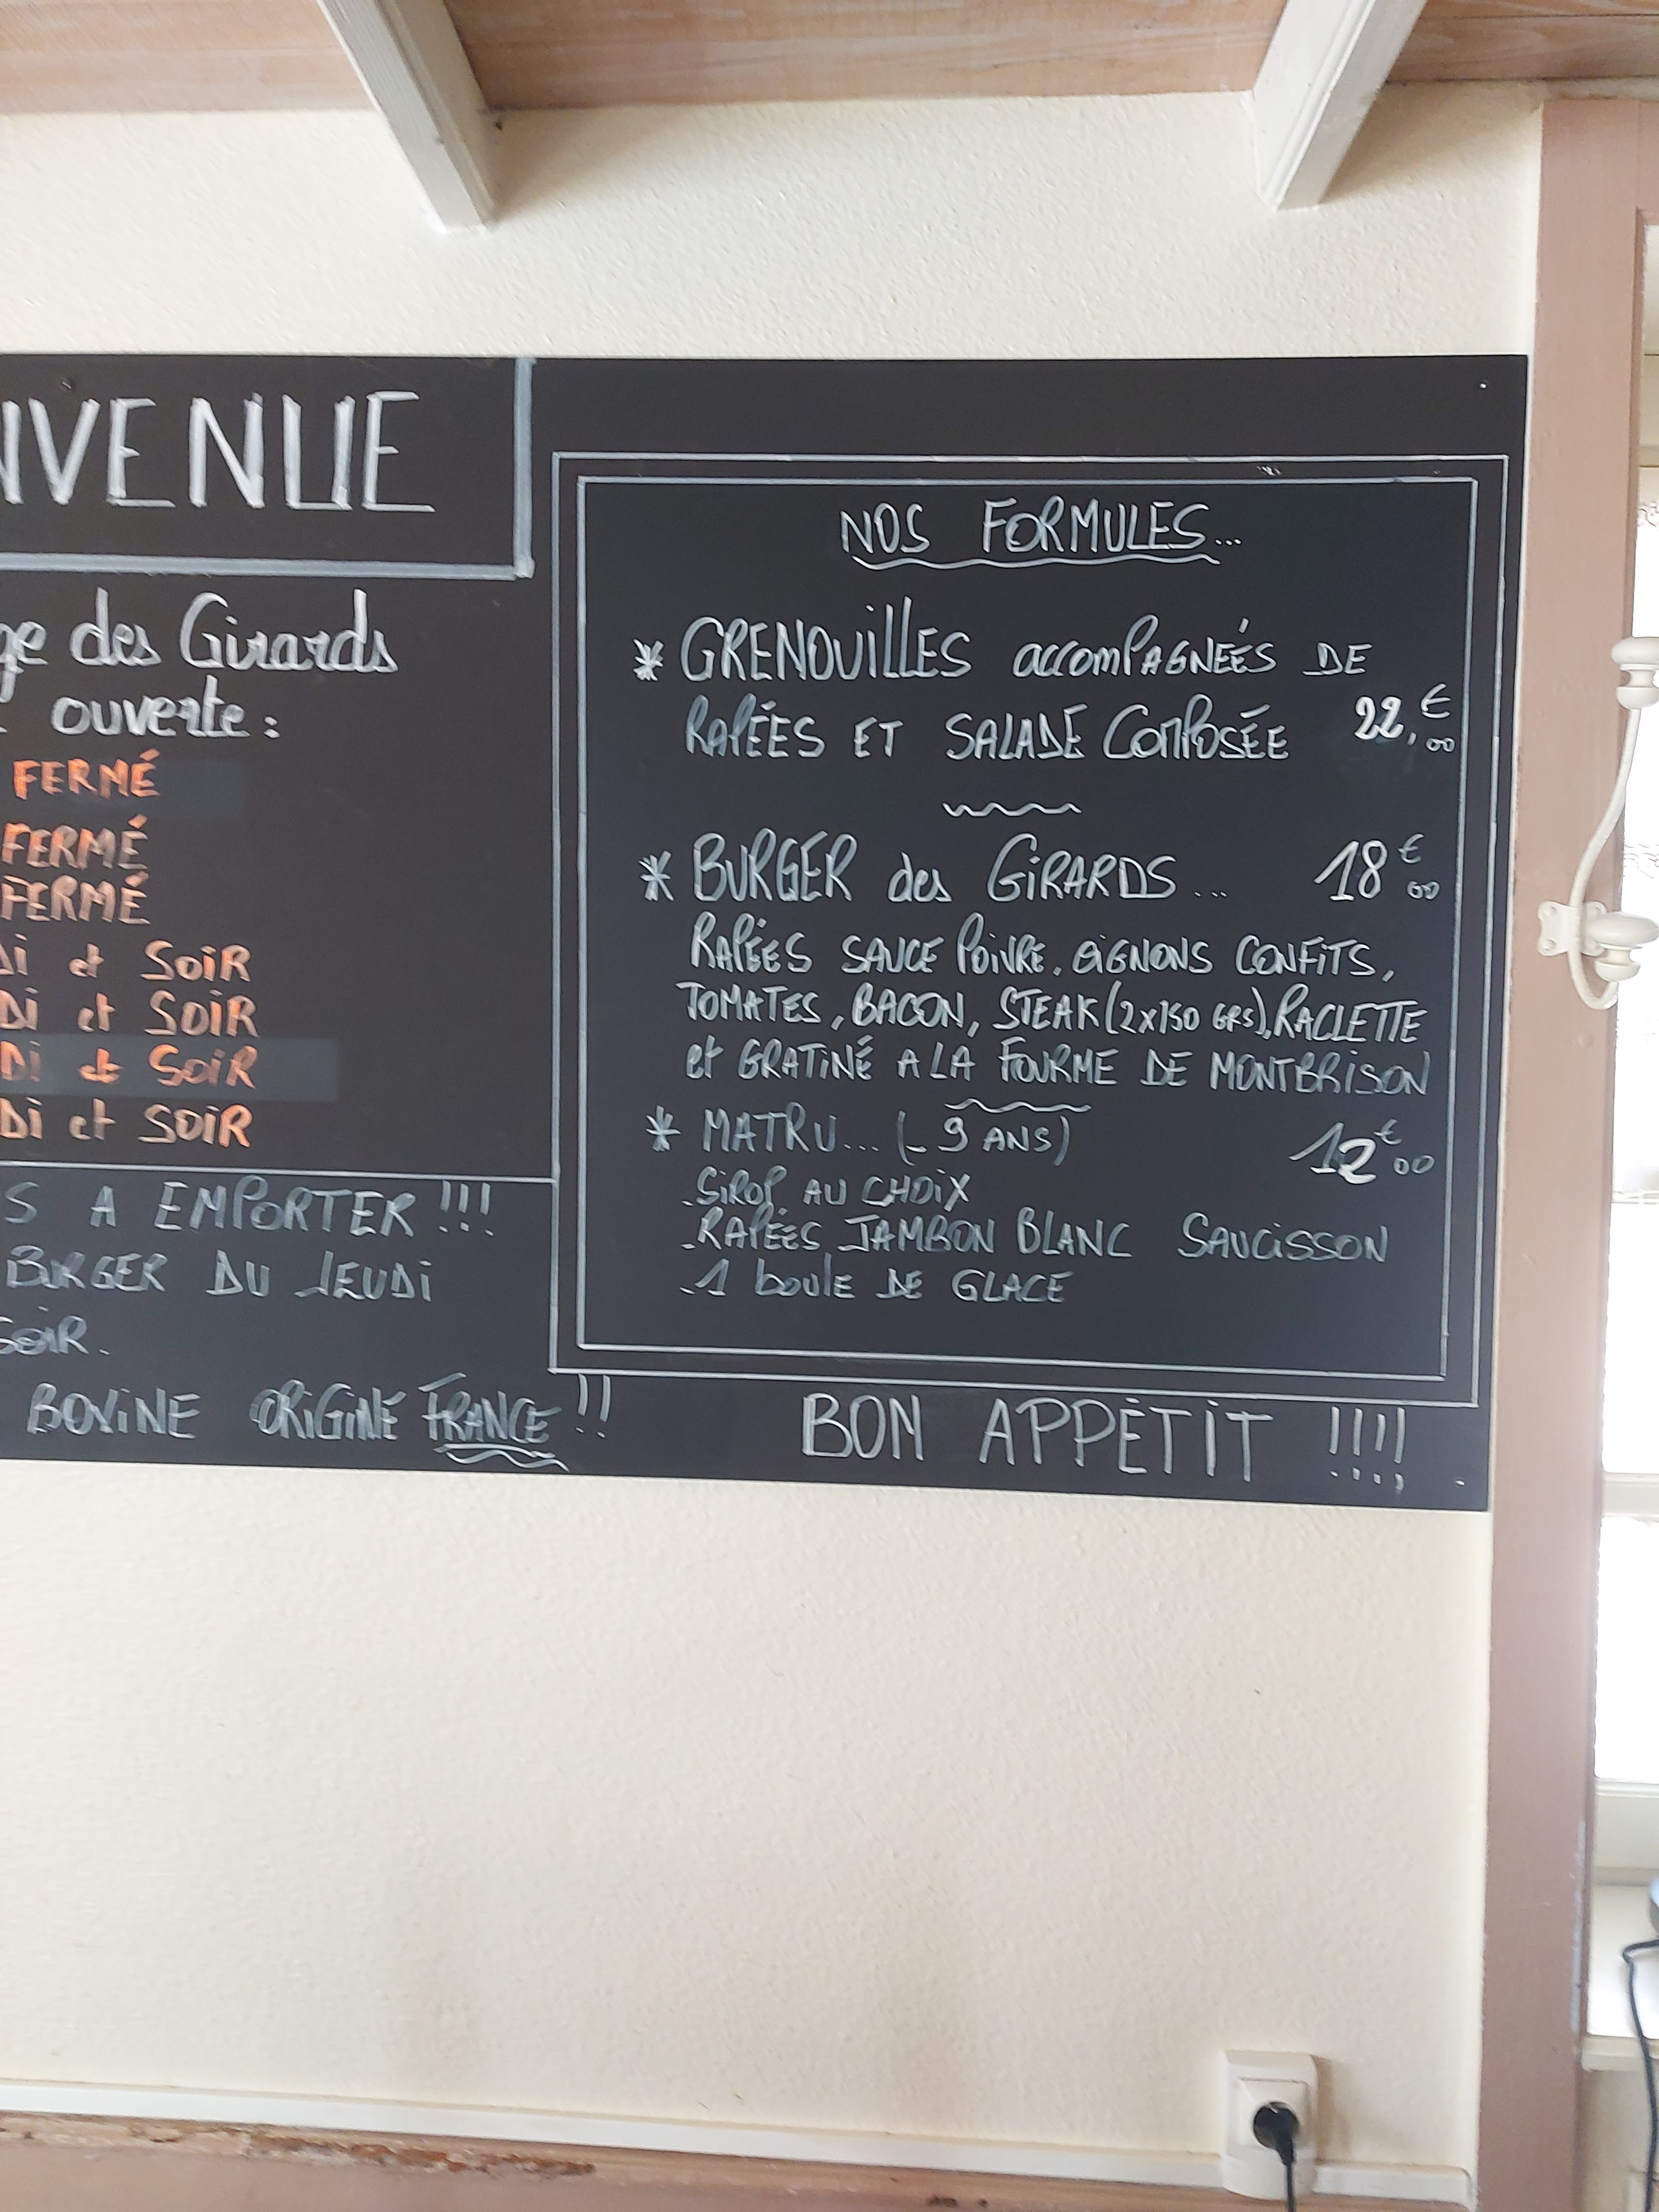 NVENUE
ge des Girards
ouverte :
FERMÉ
FERMÉ
FERMÉ
Di et SOIR
Di et SOIR
Di et SOIR
Di et SOIR
S A EMPORTER !!!
BURGER DU JEUDI
SOIR.
BOVINE ORIGINE FRANCE !!
NOS FORMULES...
* GRENOUILLES accomPAGNÉES DE
RAPÉES ET SALADE COMPOSÉE 22,€00
* BURGER des GIRARDS... 18€00
RAPÉES SAUCE POIVRE, OIGNONS CONFITS,
TOMATES, BACON, STEAK (2x150 GRS), RACLETTE
et GRATINÉ A LA FOURME DE MONTBRISON
* MATRU... (- 9 ANS) 12€00
- SIROP AU CHOIX
- RAPÉES JAMBON BLANC SAUCISSON
- 1 boule DE GLACE
BON APPÉTIT !!!!